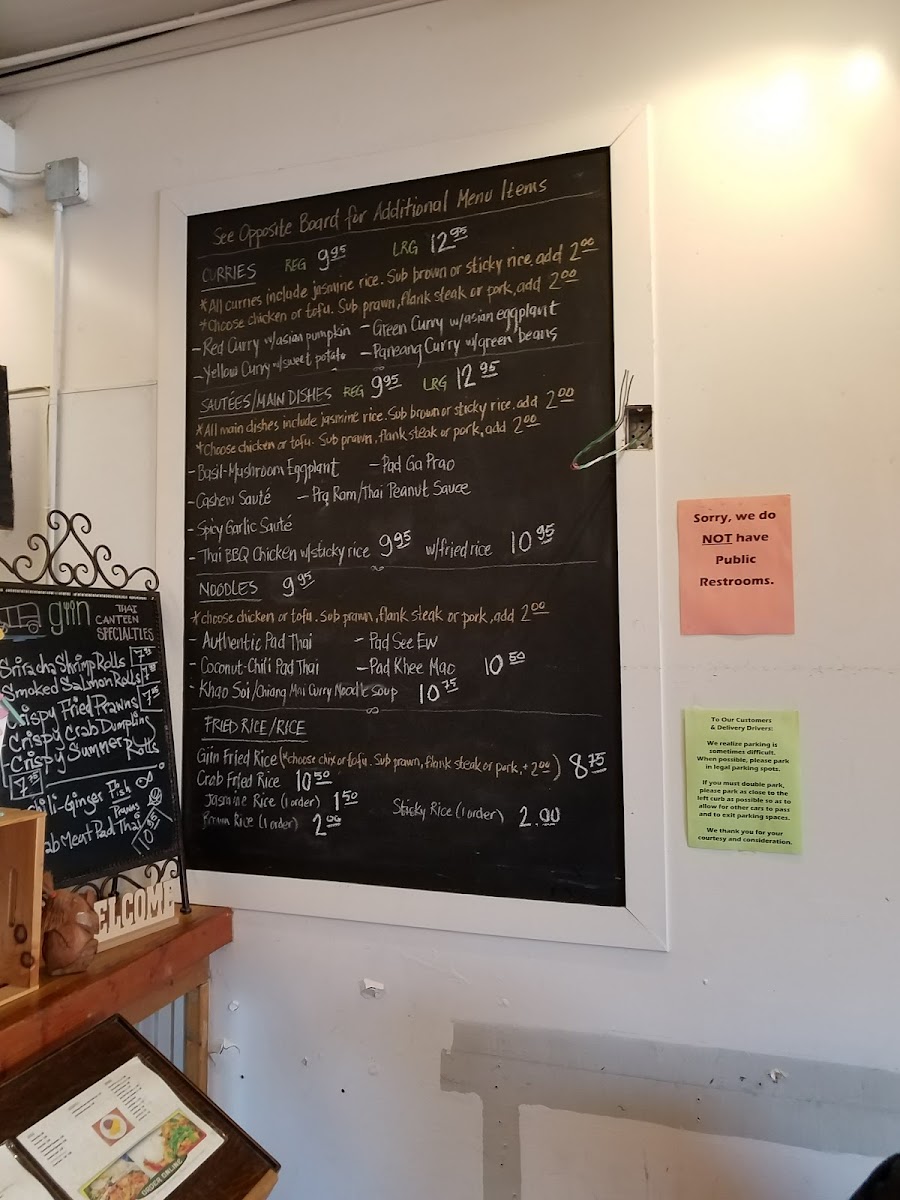 See Opposite Board for Additional Menu Items
CURRIES REG 9.95 LRG 12.95
*All curries include jasmine rice. Sub brown or sticky rice, add 2.00
*Choose chicken or tofu. Sub prawn, flank steak or pork, add 2.00
- Red Curry w/asian pumpkin - Green Curry w/asian eggplant
- Yellow Curry w/sweet potato - Paneang Curry w/green beans
SAUTEES/MAIN DISHES REG 9.95 LRG 12.95
*All main dishes include jasmine rice. Sub brown or sticky rice, add 2.00
*Choose chicken or tofu. Sub prawn, flank steak or pork, add 2.00
- Basil-Mushroom Eggplant - Pad Ga Prao
- Cashew Sauté - Prq Ram/Thai Peanut Sauce
- Spicy Garlic Sauté
- Thai BBQ Chicken w/sticky rice 9.95 w/fried rice 10.95
NOODLES 9.95
*choose chicken or tofu. Sub prawn, flank steak or pork, add 2.00
- Authentic Pad Thai - Pad See Ew
- Coconut-Chili Pad Thai - Pad Khee Mao 10.50
- Khao Soi/Chiang Mai Curry Noodle Soup 10.75
FRIED RICE/RICE
Giin Fried Rice (*choose chix or tofu. Sub prawn, flank steak or pork, +2.00) 8.75
Crab Fried Rice 10.50
Jasmine Rice (1 order) 1.50 Sticky Rice (1 order) 2.00
Brown Rice (1 order) 2.00
giin THAI
CANTEEN
SPECIALTIES
Sriracha Shrimp Rolls
Smoked Salmon Rolls
Crispy Fried Prawns
Crispy Crab Dumpling
Crispy Summer Rolls
-Ginger Fish
Prawns
ab Meat Pad Thai
10.95
ELCOME
ORDER ONLINE
Sorry, we do
NOT have
Public
Restrooms.
To Our Customers
& Delivery Drivers:
We realize parking is
sometimes difficult.
When possible, please park
in legal parking spots.
If you must double park,
please park as close to the
left curb as possible so as to
allow for other cars to pass
and to exit parking spaces.
We thank you for your
courtesy and consideration.